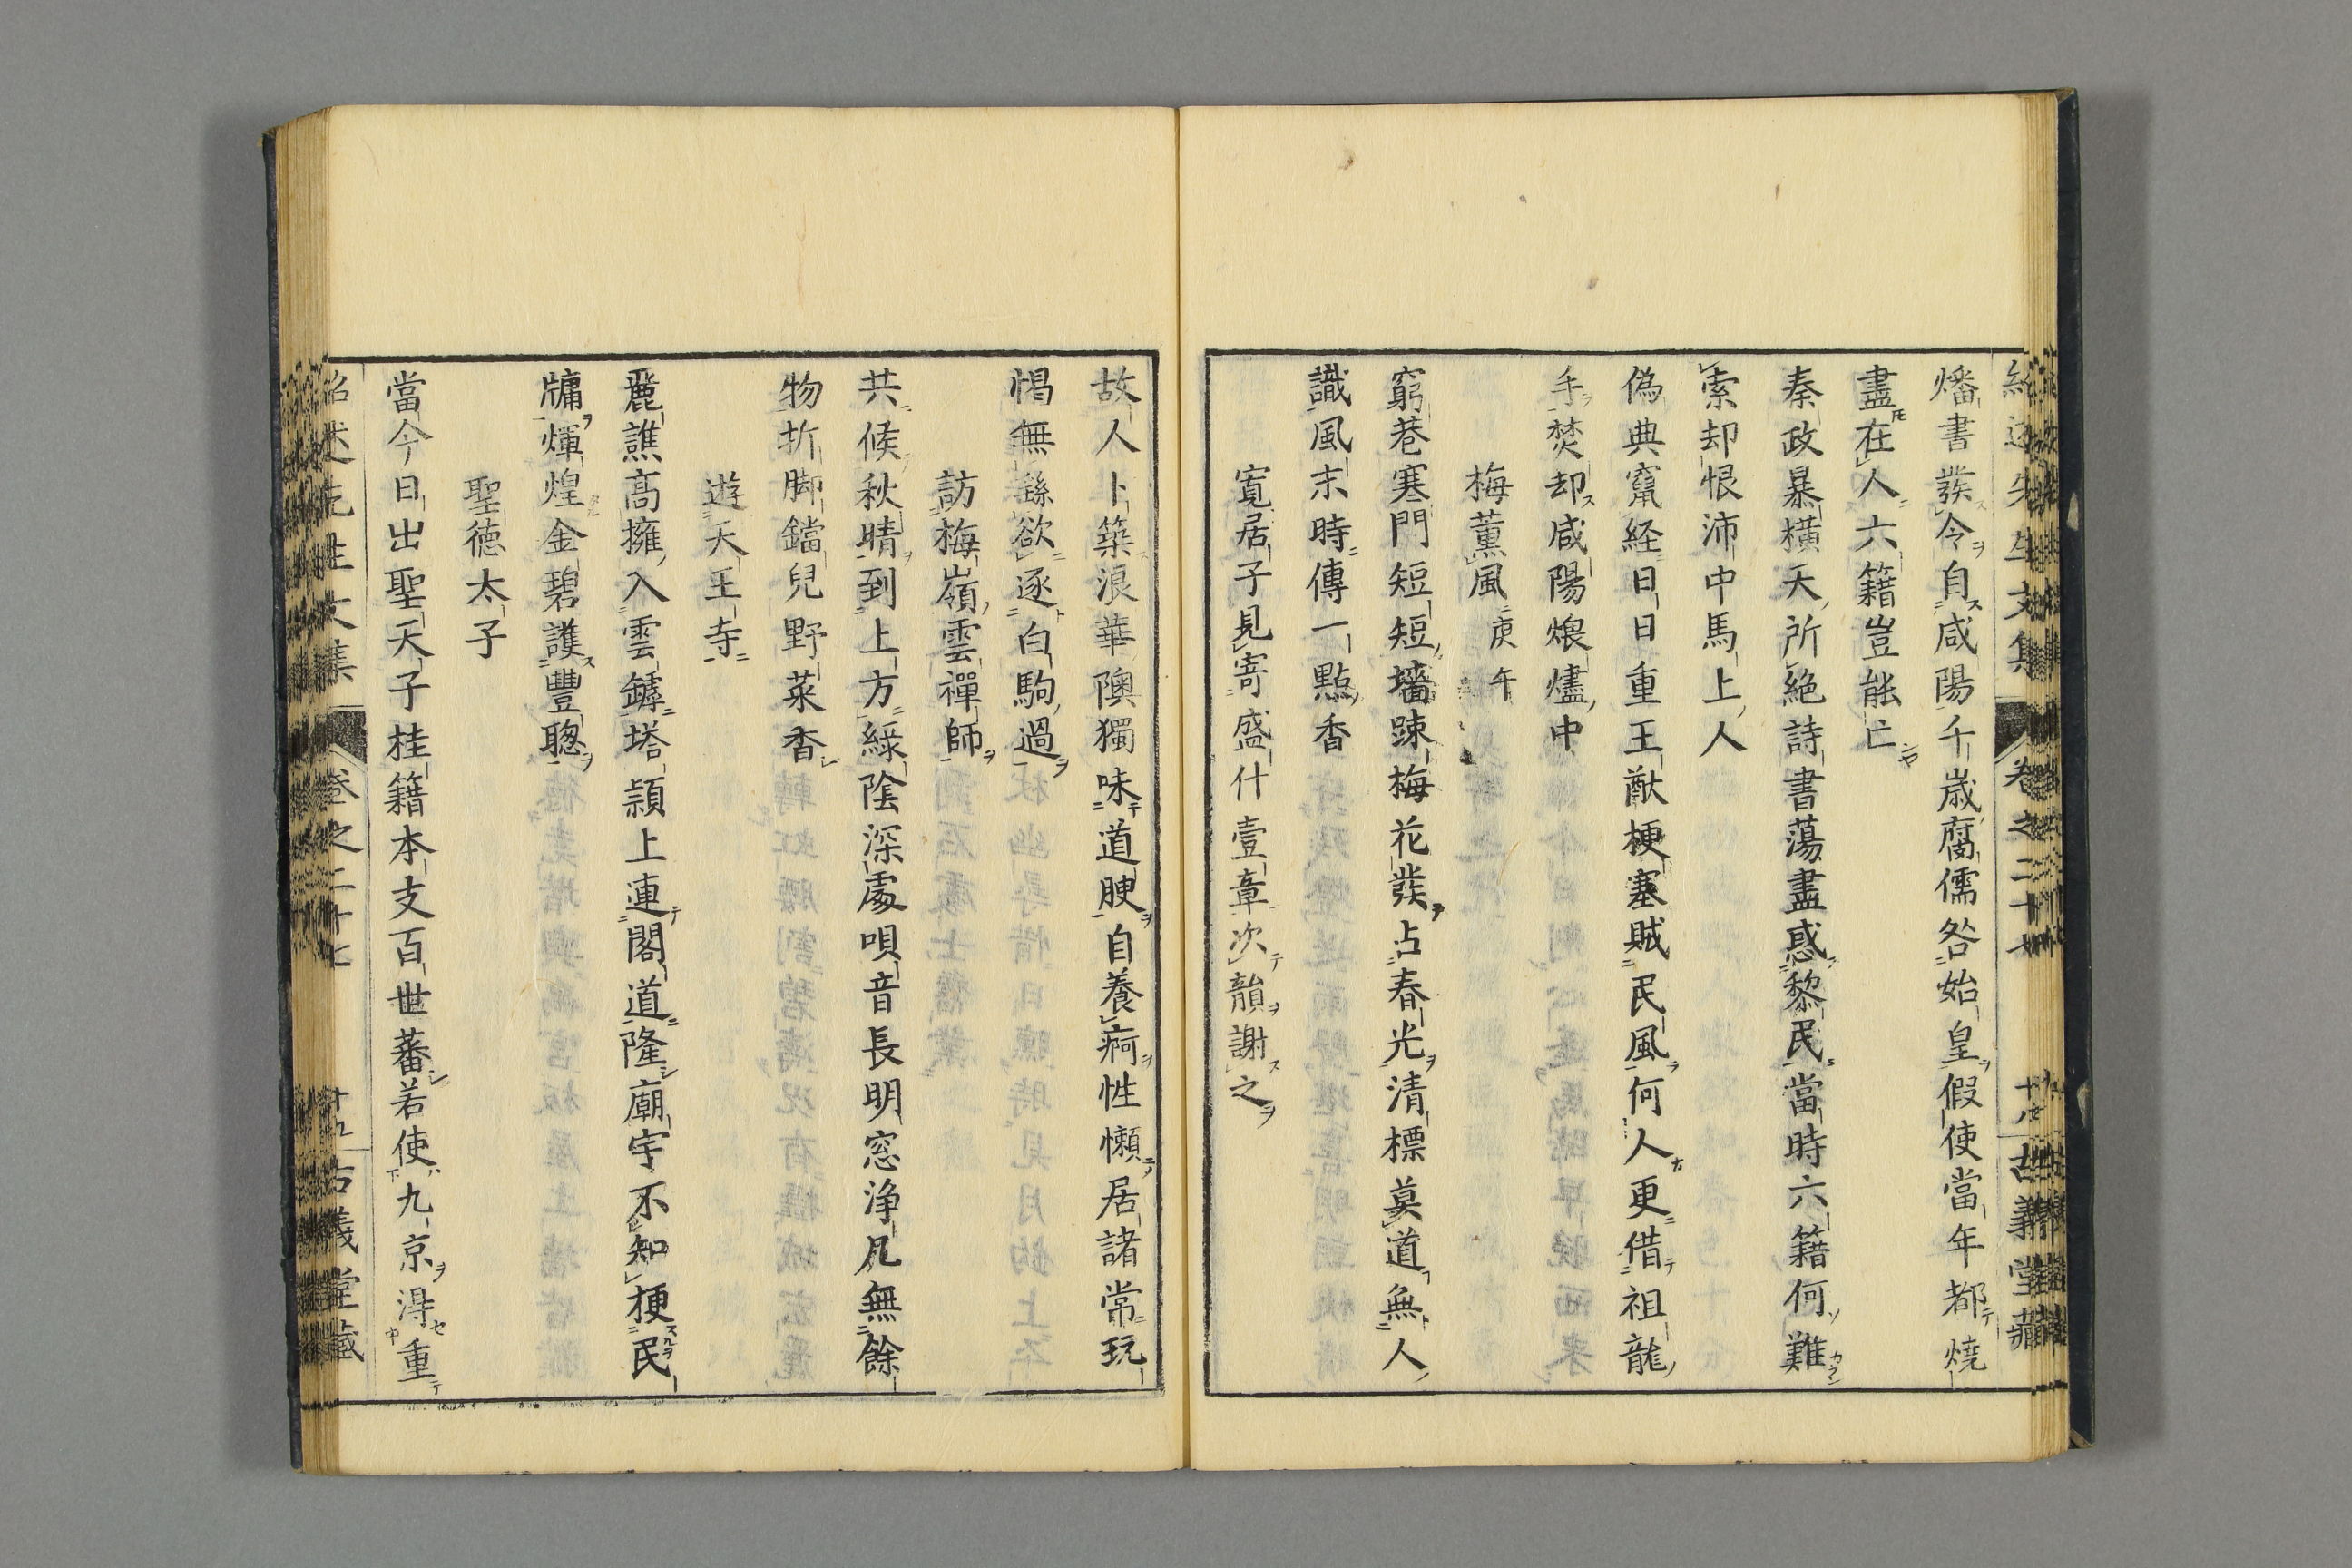 紹述先生文集 卷之二十七 古義堂藏
燔書發令自咸陽千歳腐儒咎始皇假使當年都燒
盡在人六籍豈能亡
秦政暴橫天所絶詩書蕩盡惑黎民當時六籍何難
索却恨沛中馬上人
偽典竄経日日重王猷梗塞賊民風何人更借祖龍
手焚却咸陽煨燼中
梅薫風庚午
窮巷寒門短短墻踈梅花發占春光清標莫道無人
識風末時傳一點香
寛居子見寄盛什壹章次韻謝之
故人卜築浪華隩獨味道腴自養痾性懶居諸常玩
愒無繇欲逐白駒過
訪梅嶺雲禪師
共候秋晴到上方緑陰深處唄音長明窓浄几無餘
物折脚鐺兒野菜香
遊天王寺
麗譙髙擁入雲鏬塔顙上連閣道隆廟宇不知梗民
牗煇煌金碧護豐聦
聖徳太子
當今日出聖天子桂籍本支百世蕃若使九京淂重
紹述先生文集 卷之二十七 十九 古義堂藏